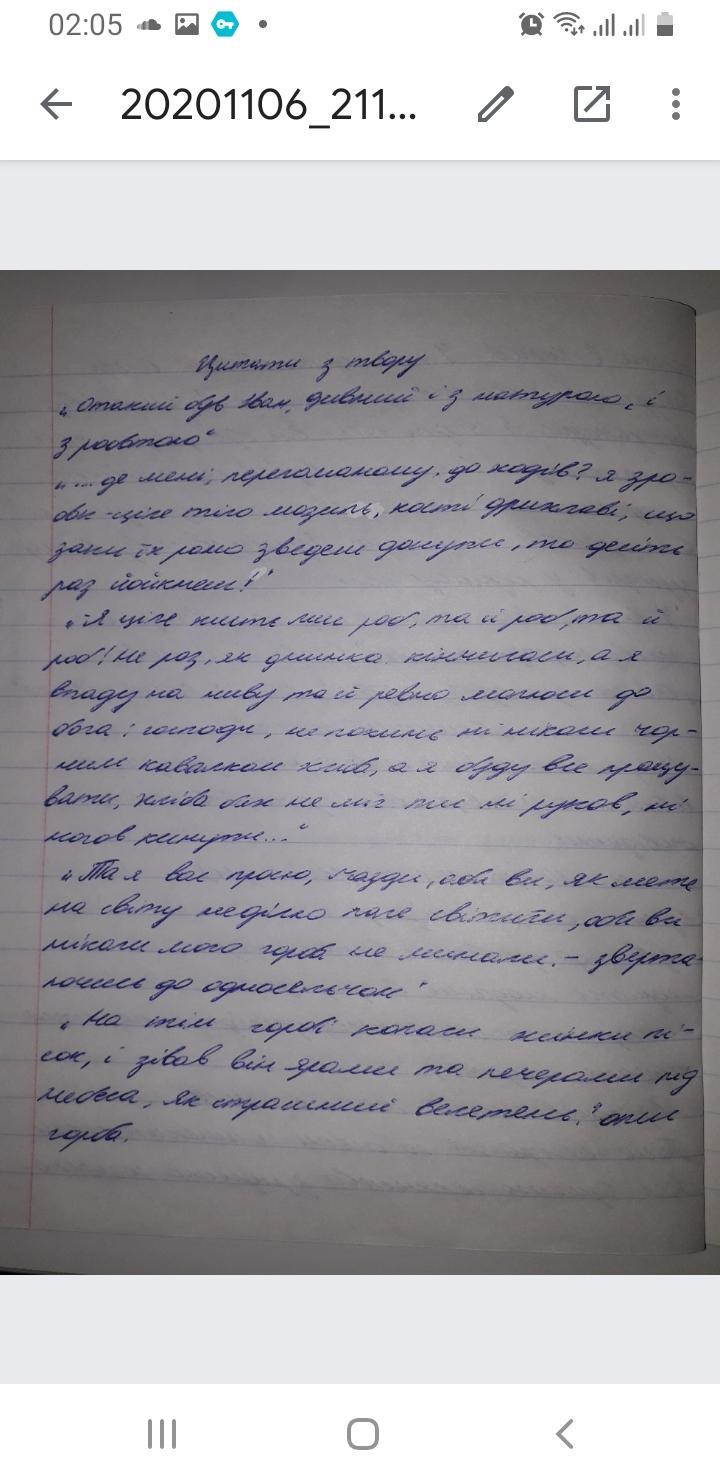 02:05
20201106_211...
Цитати з твору
„Отакий був Іван, дивний і з натурою, і
з роботою"
„...де мені, переломаному, до ходів? Я зро-
бок - ціле тіло мозиль, кості дрихлаві, що
заки їх рано зведеш докупи, то десіть
раз йойкнеш!"
„Я ціле житє лиш роб, та й роб, та й
роб! Не раз, як днинка кінчиласи, а я
впаду на ниву та й ревно молюси до
бога: господи, не покинь ні ніколи чор-
ним кавалком хліб, а я буду все працу-
вати, хліба бих не міг ні руков, ні
ногов кинути..."
„Та я вас прошу, газди, аби ви, як мете
на світу неділю поле світити, аби ви
ніколи мого горба не минали. - зверта-
ючись до односельчан"
„На тім горбі копали жінки пі-
сок, і зівав він ярами та печерами під
небеса, як страшний велетень." опис
горба.